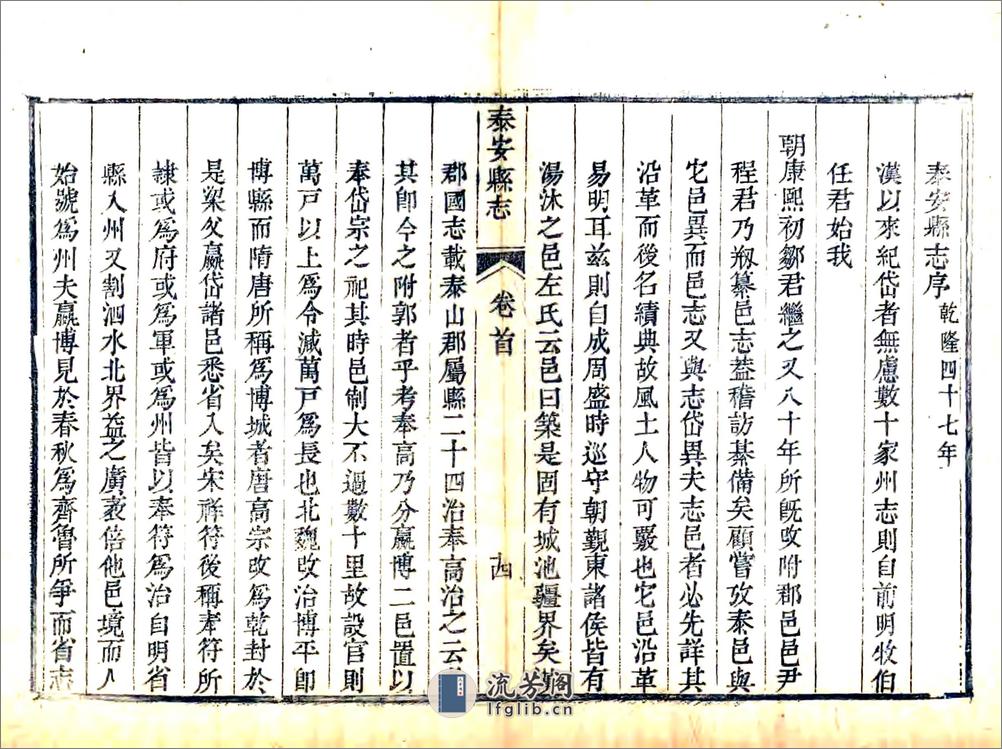 泰安縣志序 乾隆四十七年
漢以來紀岱者無慮數十家州志則自前明牧伯
任君始我
朝康熙初鄒君繼之又八十年所旣改附郡邑邑尹
程君乃剏纂邑志葢稽訪綦備矣顧嘗攷泰邑與
它邑異而邑志又與志岱異夫志邑者必先詳其
沿革而後名績典故風土人物可覈也它邑沿革
易明耳兹則自成周盛時巡守朝覲東諸侯皆有
湯沐之邑左氏云邑曰築是固有城池疆界矣
泰安縣志
卷首
十四
郡國志載泰山郡屬縣二十四治奉高治之云
其卽今之附郭者乎考奉高乃分嬴博二邑置以
奉岱宗之祀其時邑制大不過數十里故設官則
萬戸以上爲令減萬戸爲長也北魏改治博平卽
博縣而隋唐所稱爲博城者唐高宗改爲乾封於
是梁父嬴岱諸邑悉省入矣宋祥符後稱奉符所
隷或爲府或爲軍或爲州皆以奉符爲治自明省
縣入州又割泗水北界益之廣袤倍他邑境而人
始號爲州夫嬴博見於春秋爲齊魯所爭而省志
流芳閣
lfglib.cn